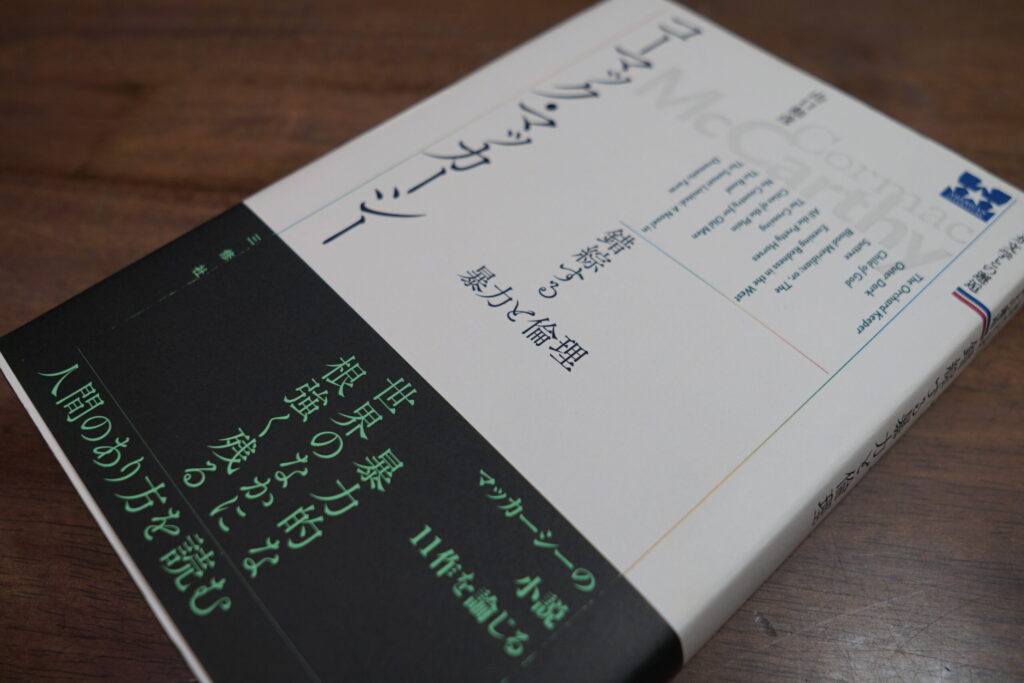 コーマック・マッカーシー
Cormac
McCarthy
山口和彦
The Orchard Keeper
Outer Dark
Child of God
Suttree
Blood Meridian; or, The
Evening Redness in the West
All the Pretty Horses
The Crossing
Cities of the Plain
No Country for Old Men
The Road
The Sunset Limited: A Novel in
Dramatic Form
錯綜する
暴力と倫理
三修社
マッカーシーの小説
11作を論じる
暴力的な
世界のなかに
根強く残る
人間のあり方を読む
文学との邂逅
錯綜する暴力と倫理